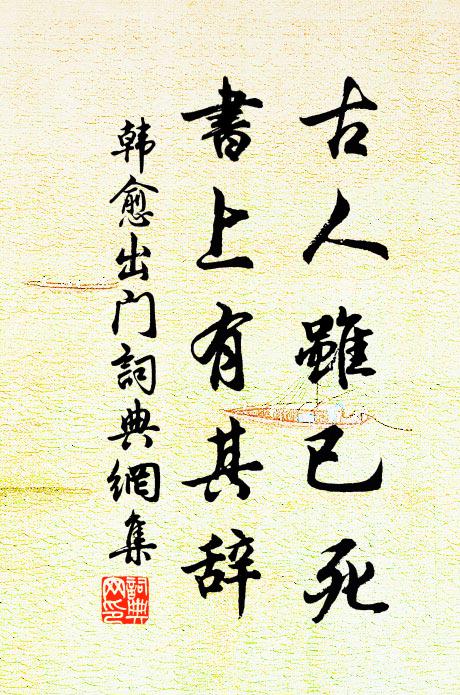 古人雖已死
書上有其辞
韩愈出门詞典網集
詞典网印